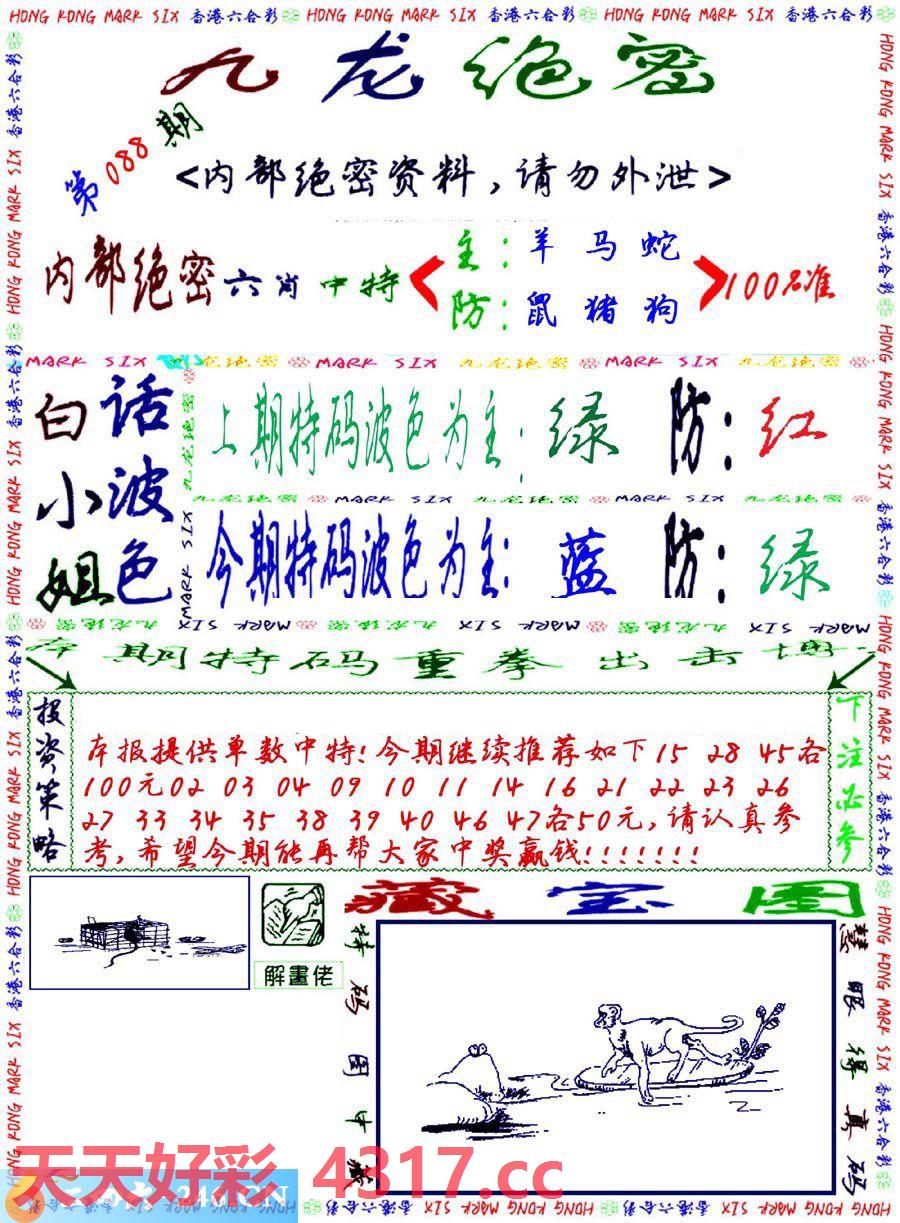 HONG KONG MARK SIX 香港六合彩 HONG KONG MARK SIX 香港六合彩 HONG KONG MARK SIX 香港六合彩
九龙绝密
第088期
<内部绝密资料,请勿外泄>
内部绝密六肖中特
主:羊马蛇
防:鼠猪狗
100%准
MARK SIX 九龙绝密 MARK SIX 九龙绝密 MARK SIX 九龙绝密
白话小波姐色
上期特码波色为主:绿 防:红
九龙绝密 MARK SIX 九龙绝密 MARK SIX 九龙绝密
今期特码波色为主:蓝 防:绿
九龙绝密 MARK SIX 九龙绝密 MARK SIX 九龙绝密 MARK SIX
本期特码重拳出击博
投资策略
本报提供单数中特!今期继续推荐如下15 28 45各
100元02 03 04 09 10 11 14 16 21 22 23 26
27 33 34 35 38 39 40 46 47各50元,请认真参
考,希望今期能再帮大家中奖赢钱!!!!!!!
下注必参
解畫佬
藏宝图
特码图中
慧眼得真码
天天好彩 4317.cc
246.CN